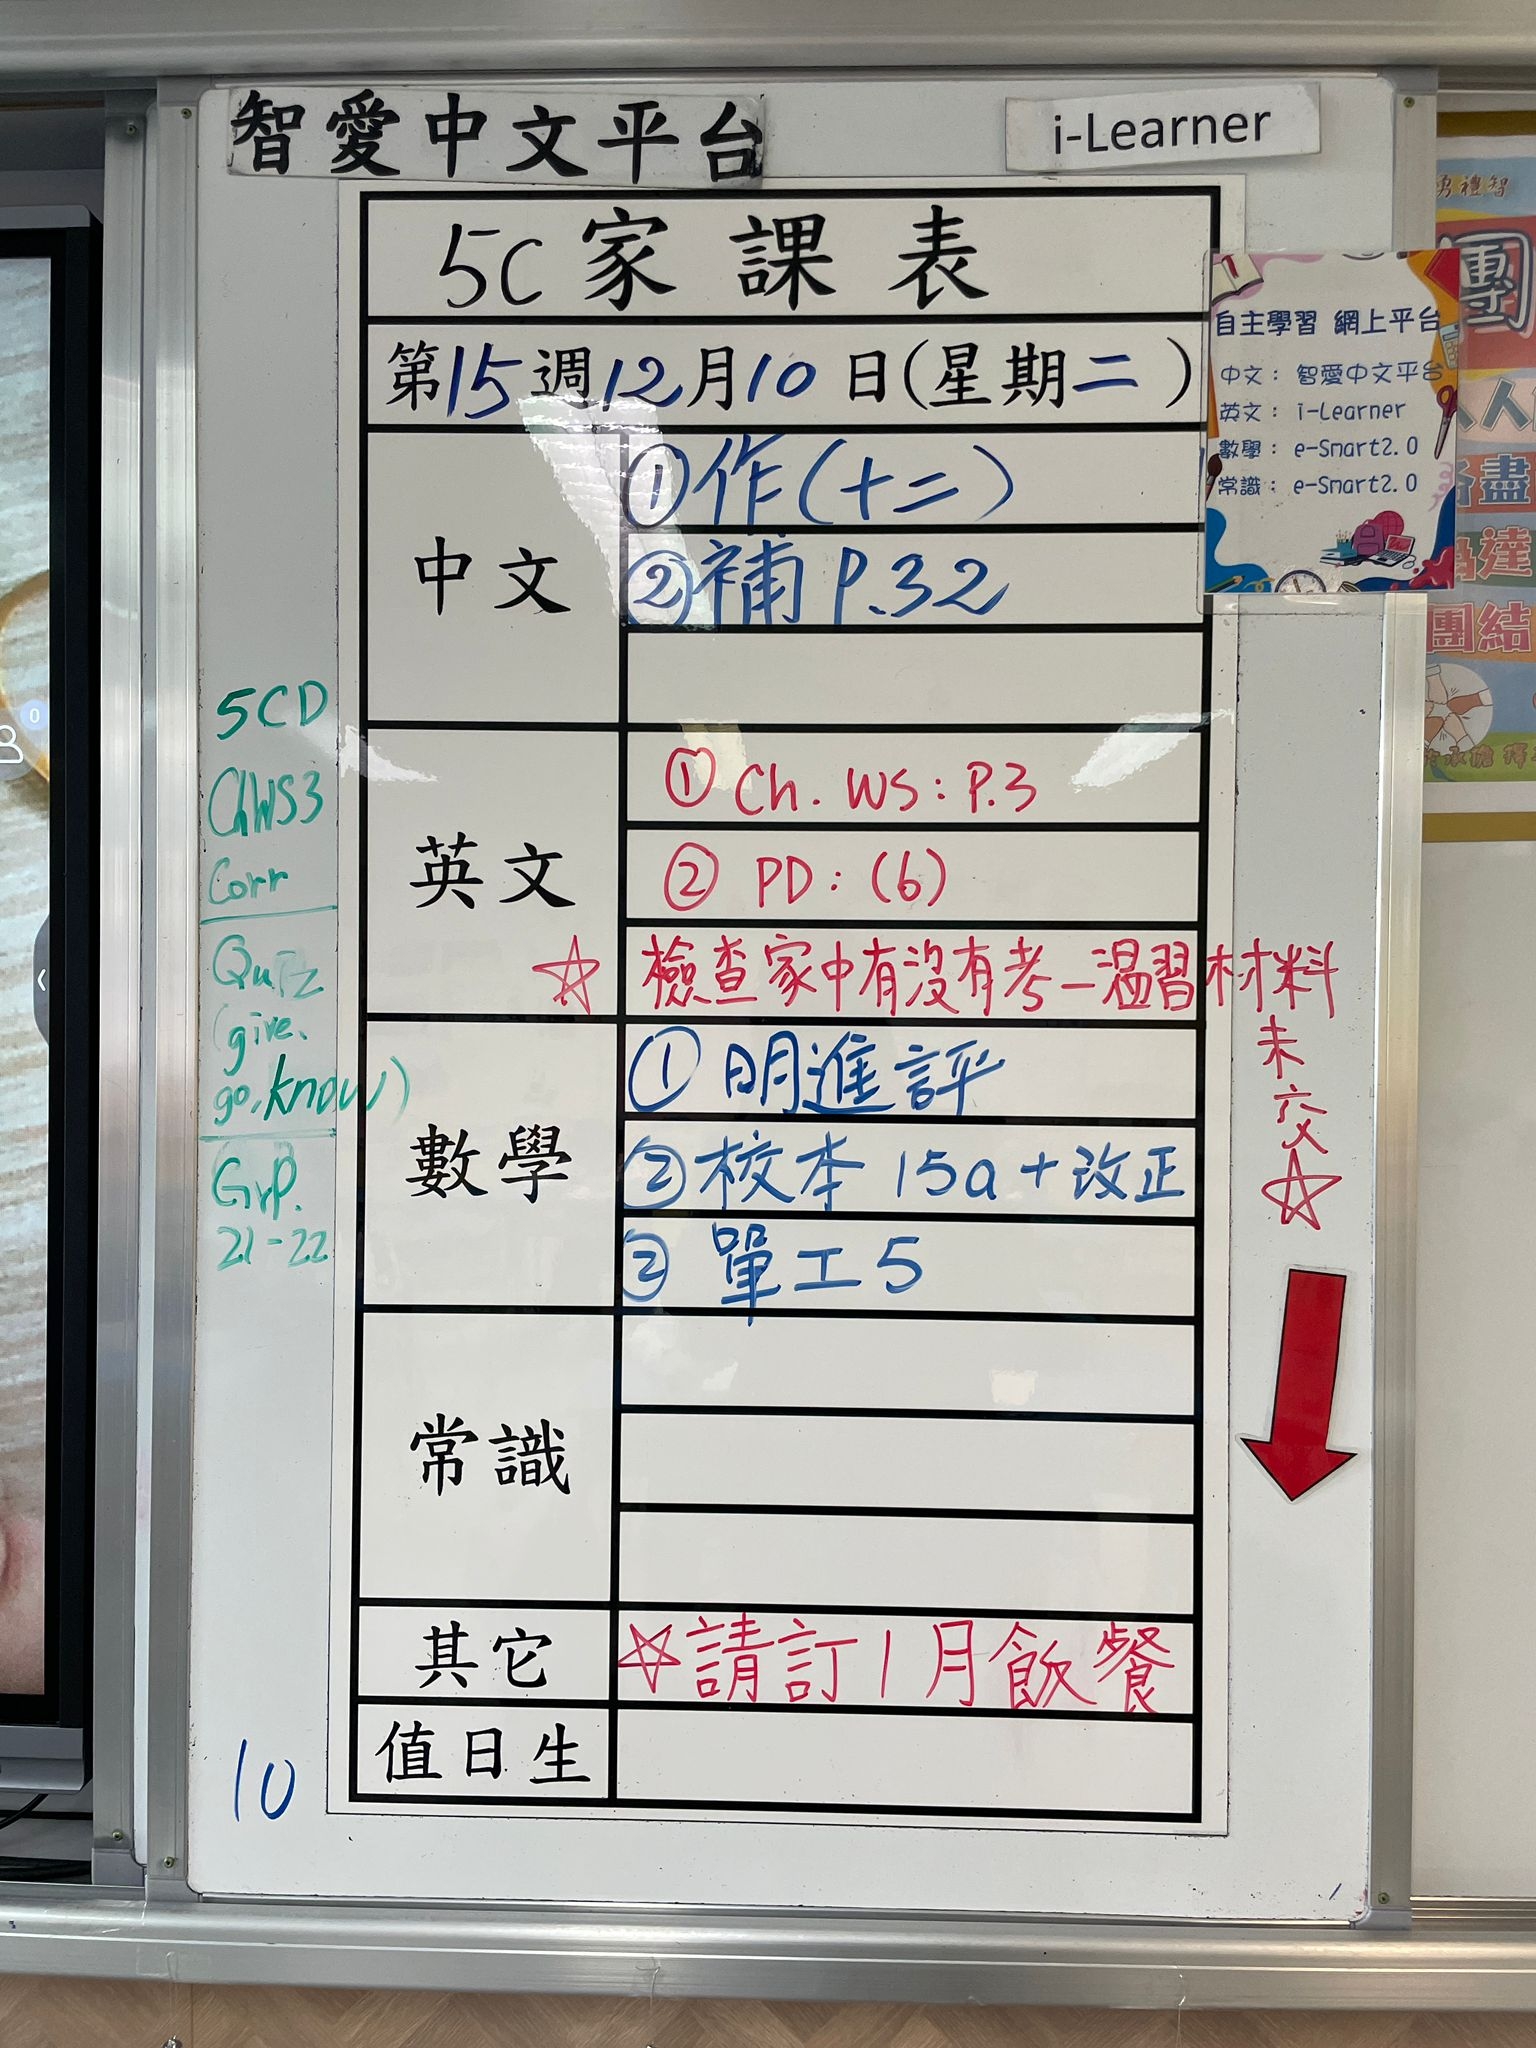 智愛中文平台
i-Learner
5C家課表
第15週12月10日(星期二)
中文
①作(十二)
②補 P.32
英文
① Ch. WS: P.3
② PD: (6)
☆ 檢查家中有沒有考一溫習材料
未交☆
數學
① 明進評
② 校本 15a + 改正
② 單工5
常識
其它
☆請訂1月飯餐
值日生
5CD
ChWS3
Corr
Quiz
(give.
go, know)
GrP.
21-22
10
自主學習 網上平台
中文: 智愛中文平台
英文: i-Learner
數學: e-Smart2.0
常識: e-Smart2.0
禮智
團
盡
達
團結
承擔
0